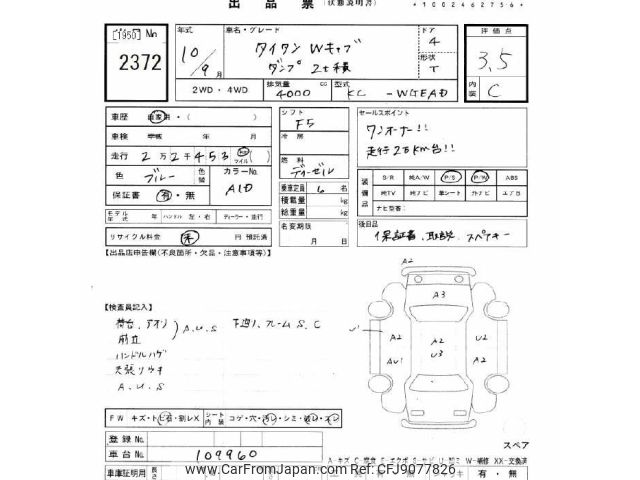 出品票 (状態説明書) *1002462756*
[1950] No 2372
年式 10/9月
車名・グレード タイタン Wキャブ ダンプ 2t積
ドア 4
形状 T
評価点 3,5
内装 C
2WD・4WD
排気量 4000 cc
型式 KC-WGEAD
車歴 自家用・( )
車検 平成 年 月
走行 2万2千453 km マイル
色 ブルー 色替
カラーNo. A1D
保証書 有・無
シフト F5
冷房
燃料 ディーゼル
乗車定員 6 名
積載量 kg
総重量 kg
名変期限 月 日
セールスポイント
ワンオーナー!!
走行2万km台!!
装備品 S/R 純A/W P/S P/W ABS
純TV 純ナビ 革シート 外ナビ エアB
ナビ型番:
モデル年式 年 ハンドル 左・右 ディーラー・並行
リサイクル料金 未 円 預託済
後日品 保証書、取説、スペアキー
【出品店申告欄(不良箇所・欠品・注意事項等)】
【検査員記入】
荷台、アオリ A,U,S 下廻り、フレームS,C
前立
ハンドルハゲ
天張リウキ
A,U,S
A2
A3
A2 A2 U2
AU1 U3 A2
FW キズ・トビ石・割レX シート内装 コゲ・穴・汚レ・シミ・破レ・スレ
登録No.
車台No. 109960
スペア
車庫証明用 有・無
www.CarFromJapan.com Ref: CFJ9077826